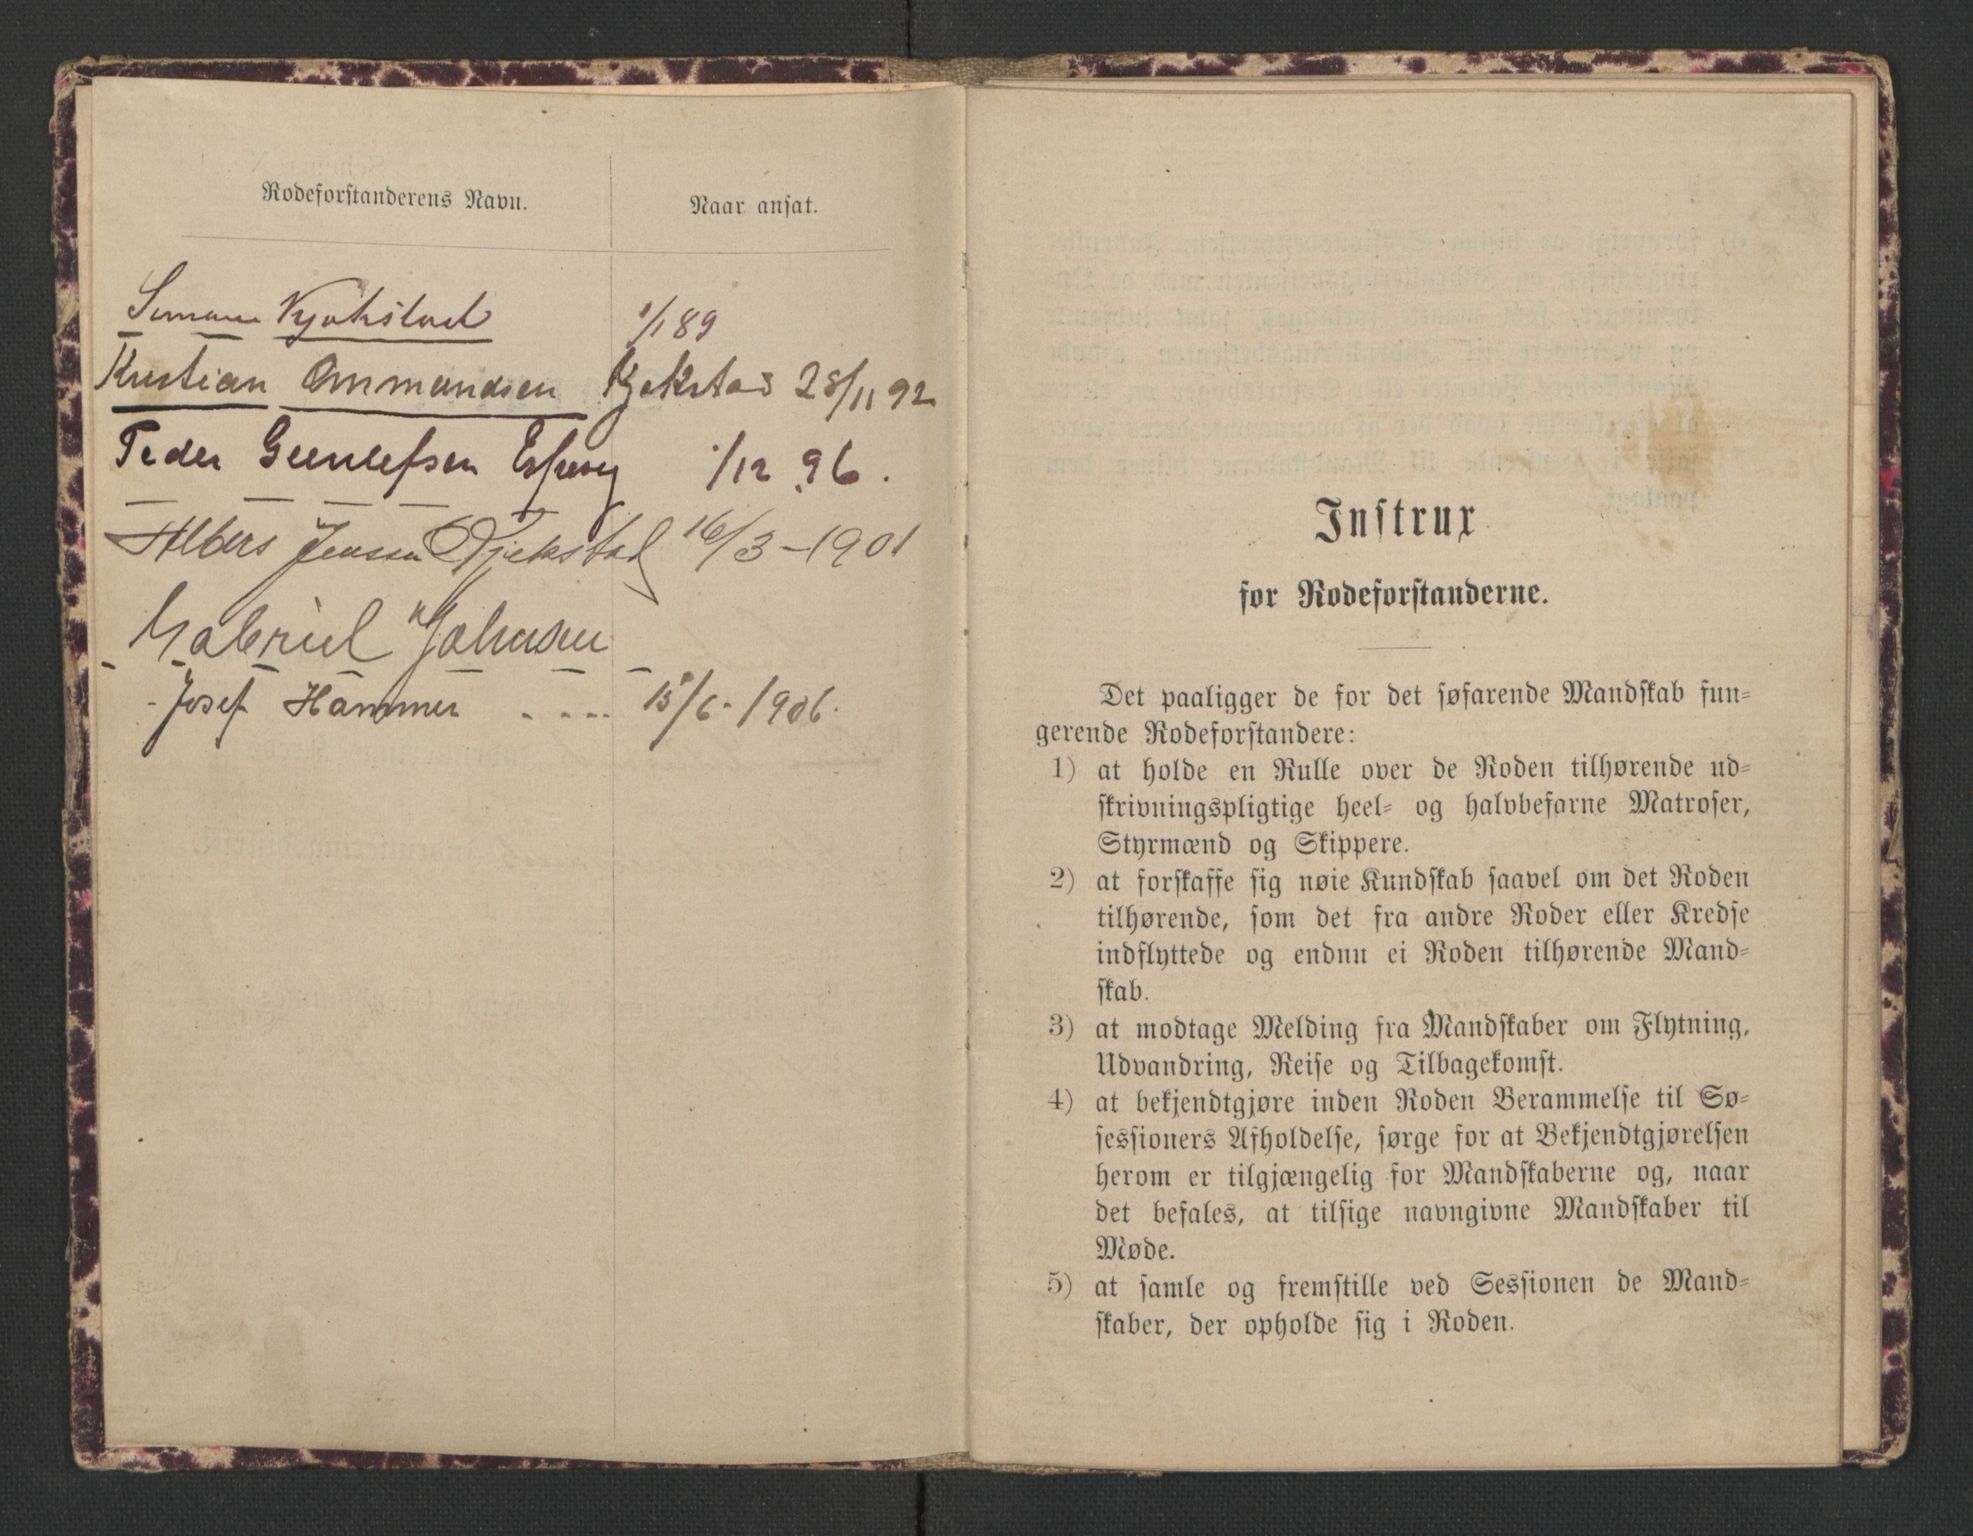 Rodeforstanderens Navn.
Naar ansat.
Kjøkstad 1/1 89
Kristian Ommundsen Kjekstad 28/11 92
Peder Gunlefsen 1/12 96.
Albers Jensen Kjekstad 16/3-1901
Gabriel Johnsen
Josef Hammer .... 15/6-1906.
Instrux
for Rodeforstanderne.
Det paaligger de for det søfarende Mandskab fun-
gerende Rodeforstandere:
1) at holde en Rulle over de Roden tilhørende ud-
skrivningspligtige heel- og halvbefarne Matroser,
Styrmænd og Skippere.
2) at forskaffe sig nøie Kundskab saavel om det Roden
tilhørende, som det fra andre Roder eller Kredse
indflyttede og endnu ei Roden tilhørende Mand-
skab.
3) at modtage Melding fra Mandskaber om Flytning,
Udvandring, Reise og Tilbagekomst.
4) at bekjendtgjøre inden Roden Berammelse til Sø-
sessioners Afholdelse, sørge for at Bekjendtgjørelsen
herom er tilgjængelig for Mandskaberne og, naar
det befales, at tilsige navngivne Mandskaber til
Møde.
5) at samle og fremstille ved Sessionen de Mand-
skaber, der opholde sig i Roden.